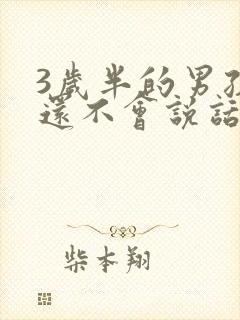 3歲半的男孩
還不會說話
柴本翔